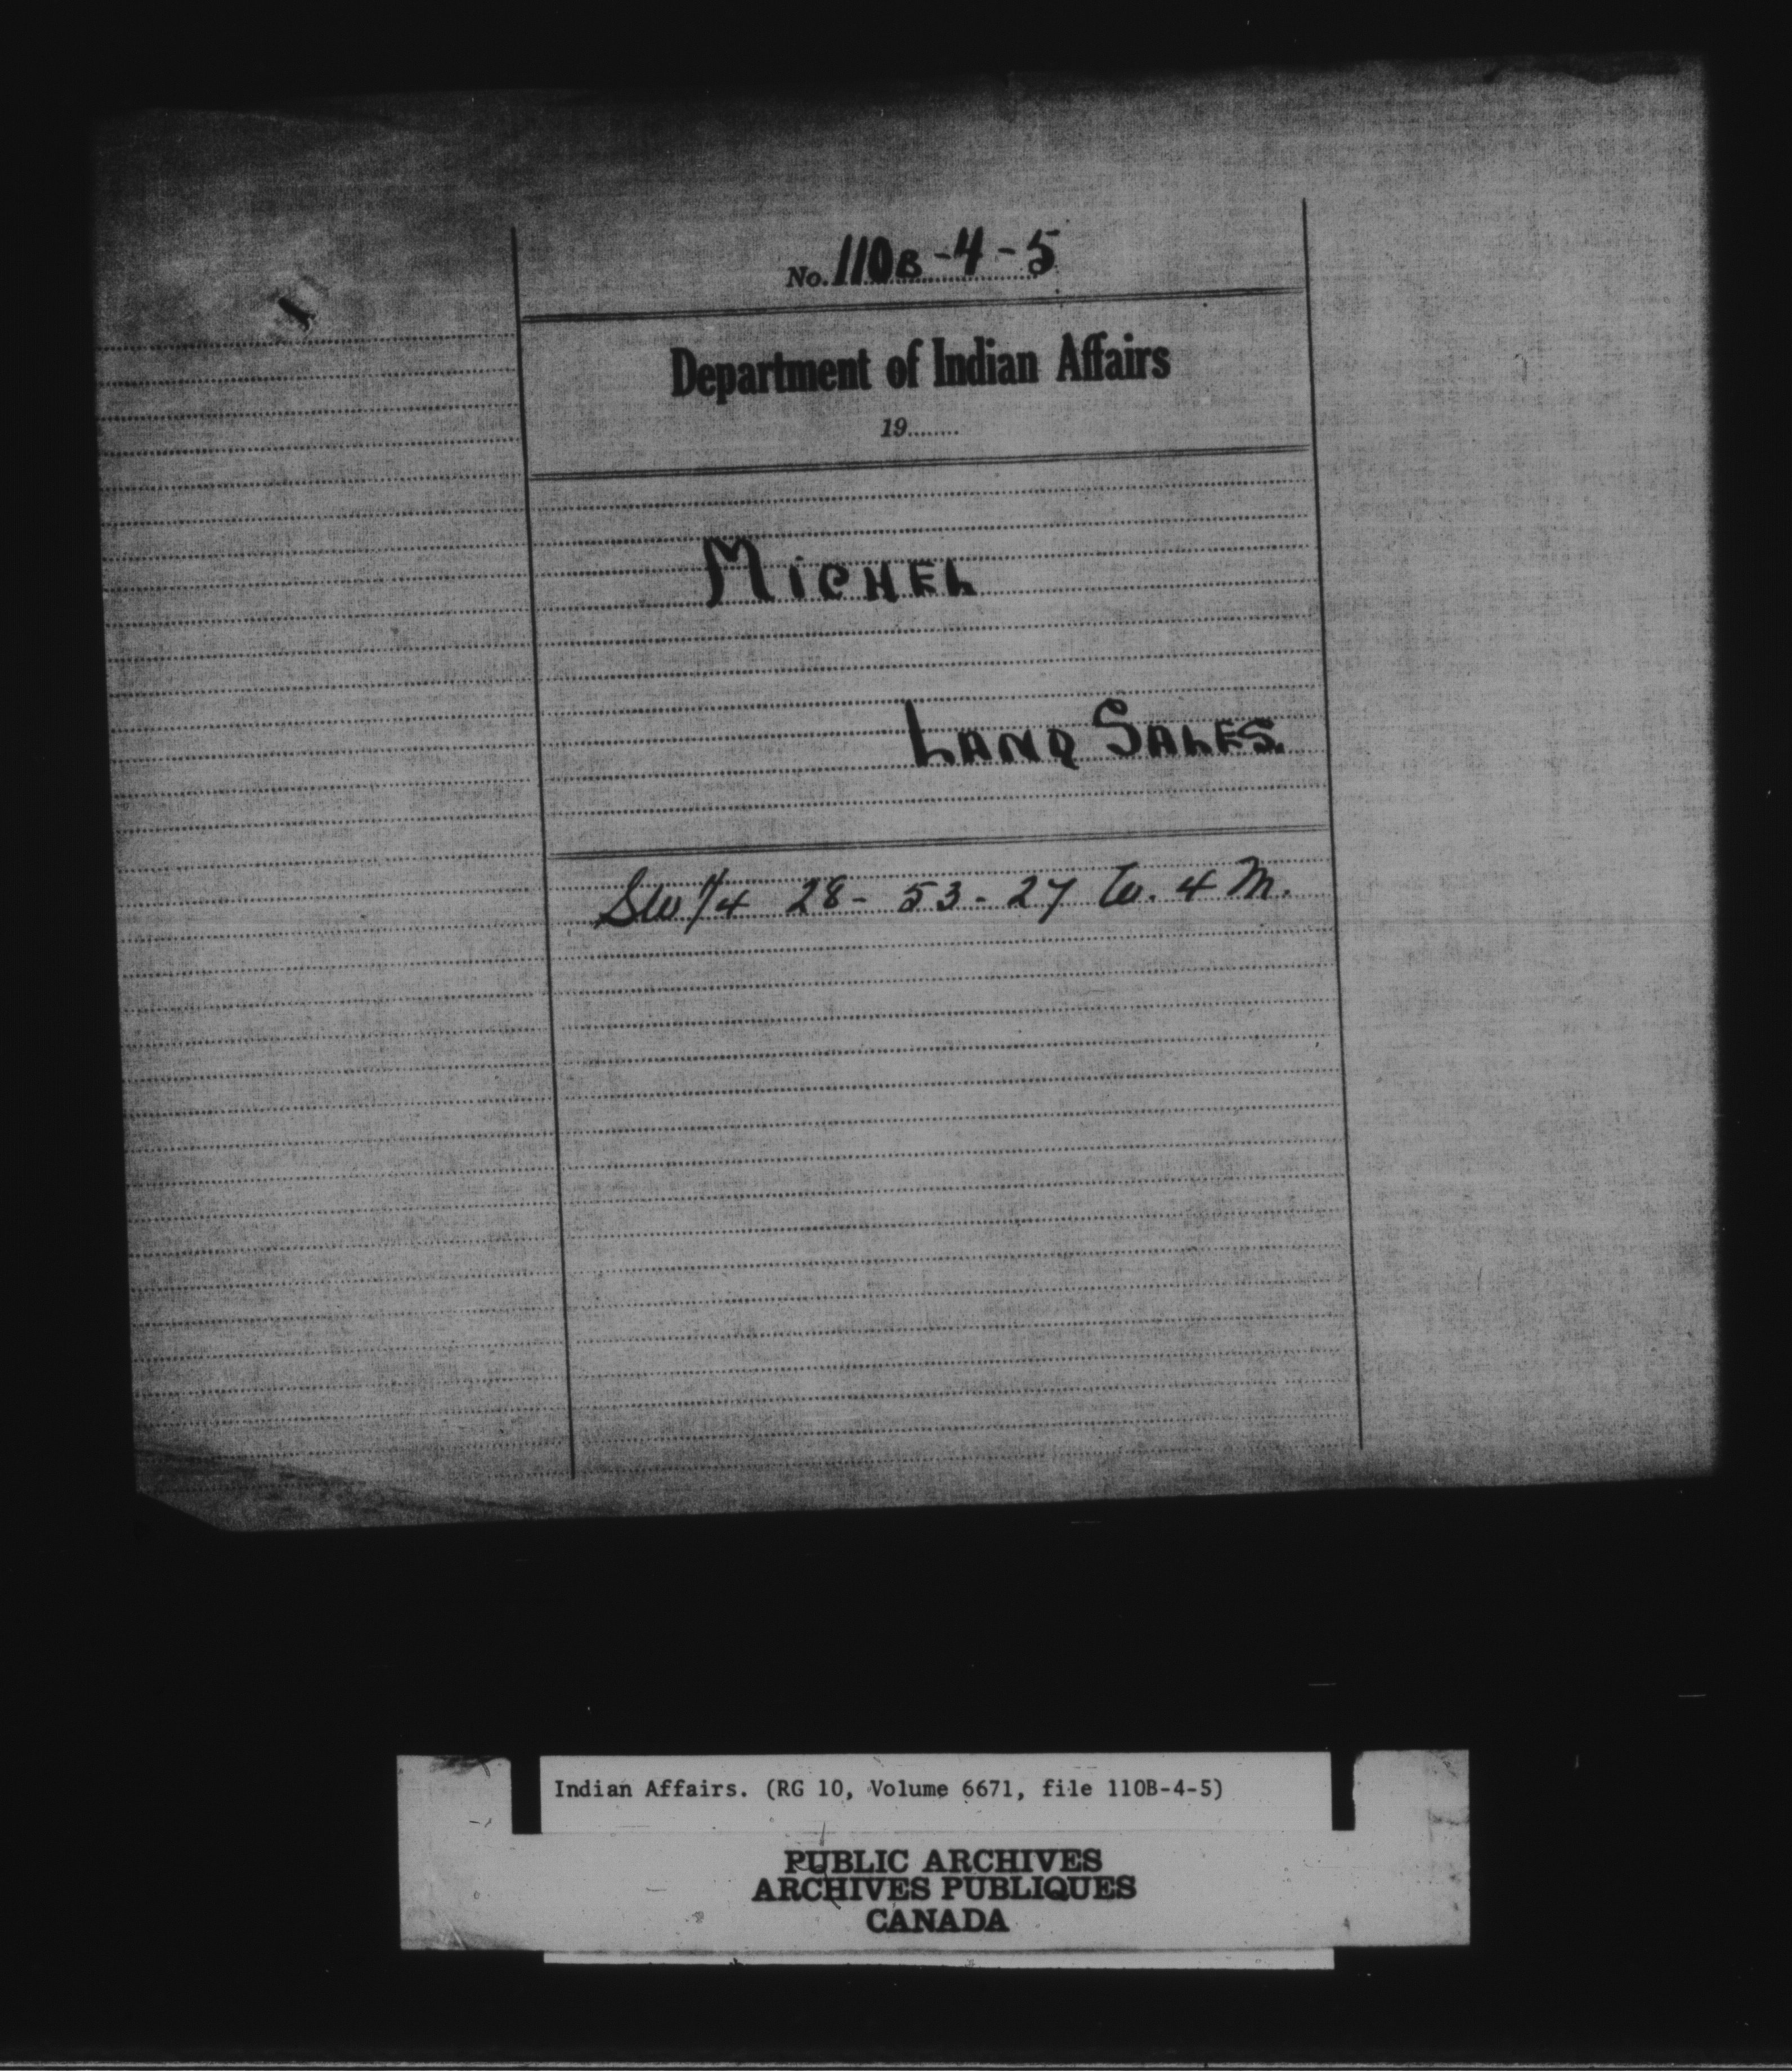 No. 110B-4-5
Department of Indian Affairs
19........
MICHEL
LAND SALES
SW 1/4 28-53-27 W. 4 M.
Indian Affairs. (RG 10, Volume 6671, file 110B-4-5)
PUBLIC ARCHIVES
ARCHIVES PUBLIQUES
CANADA